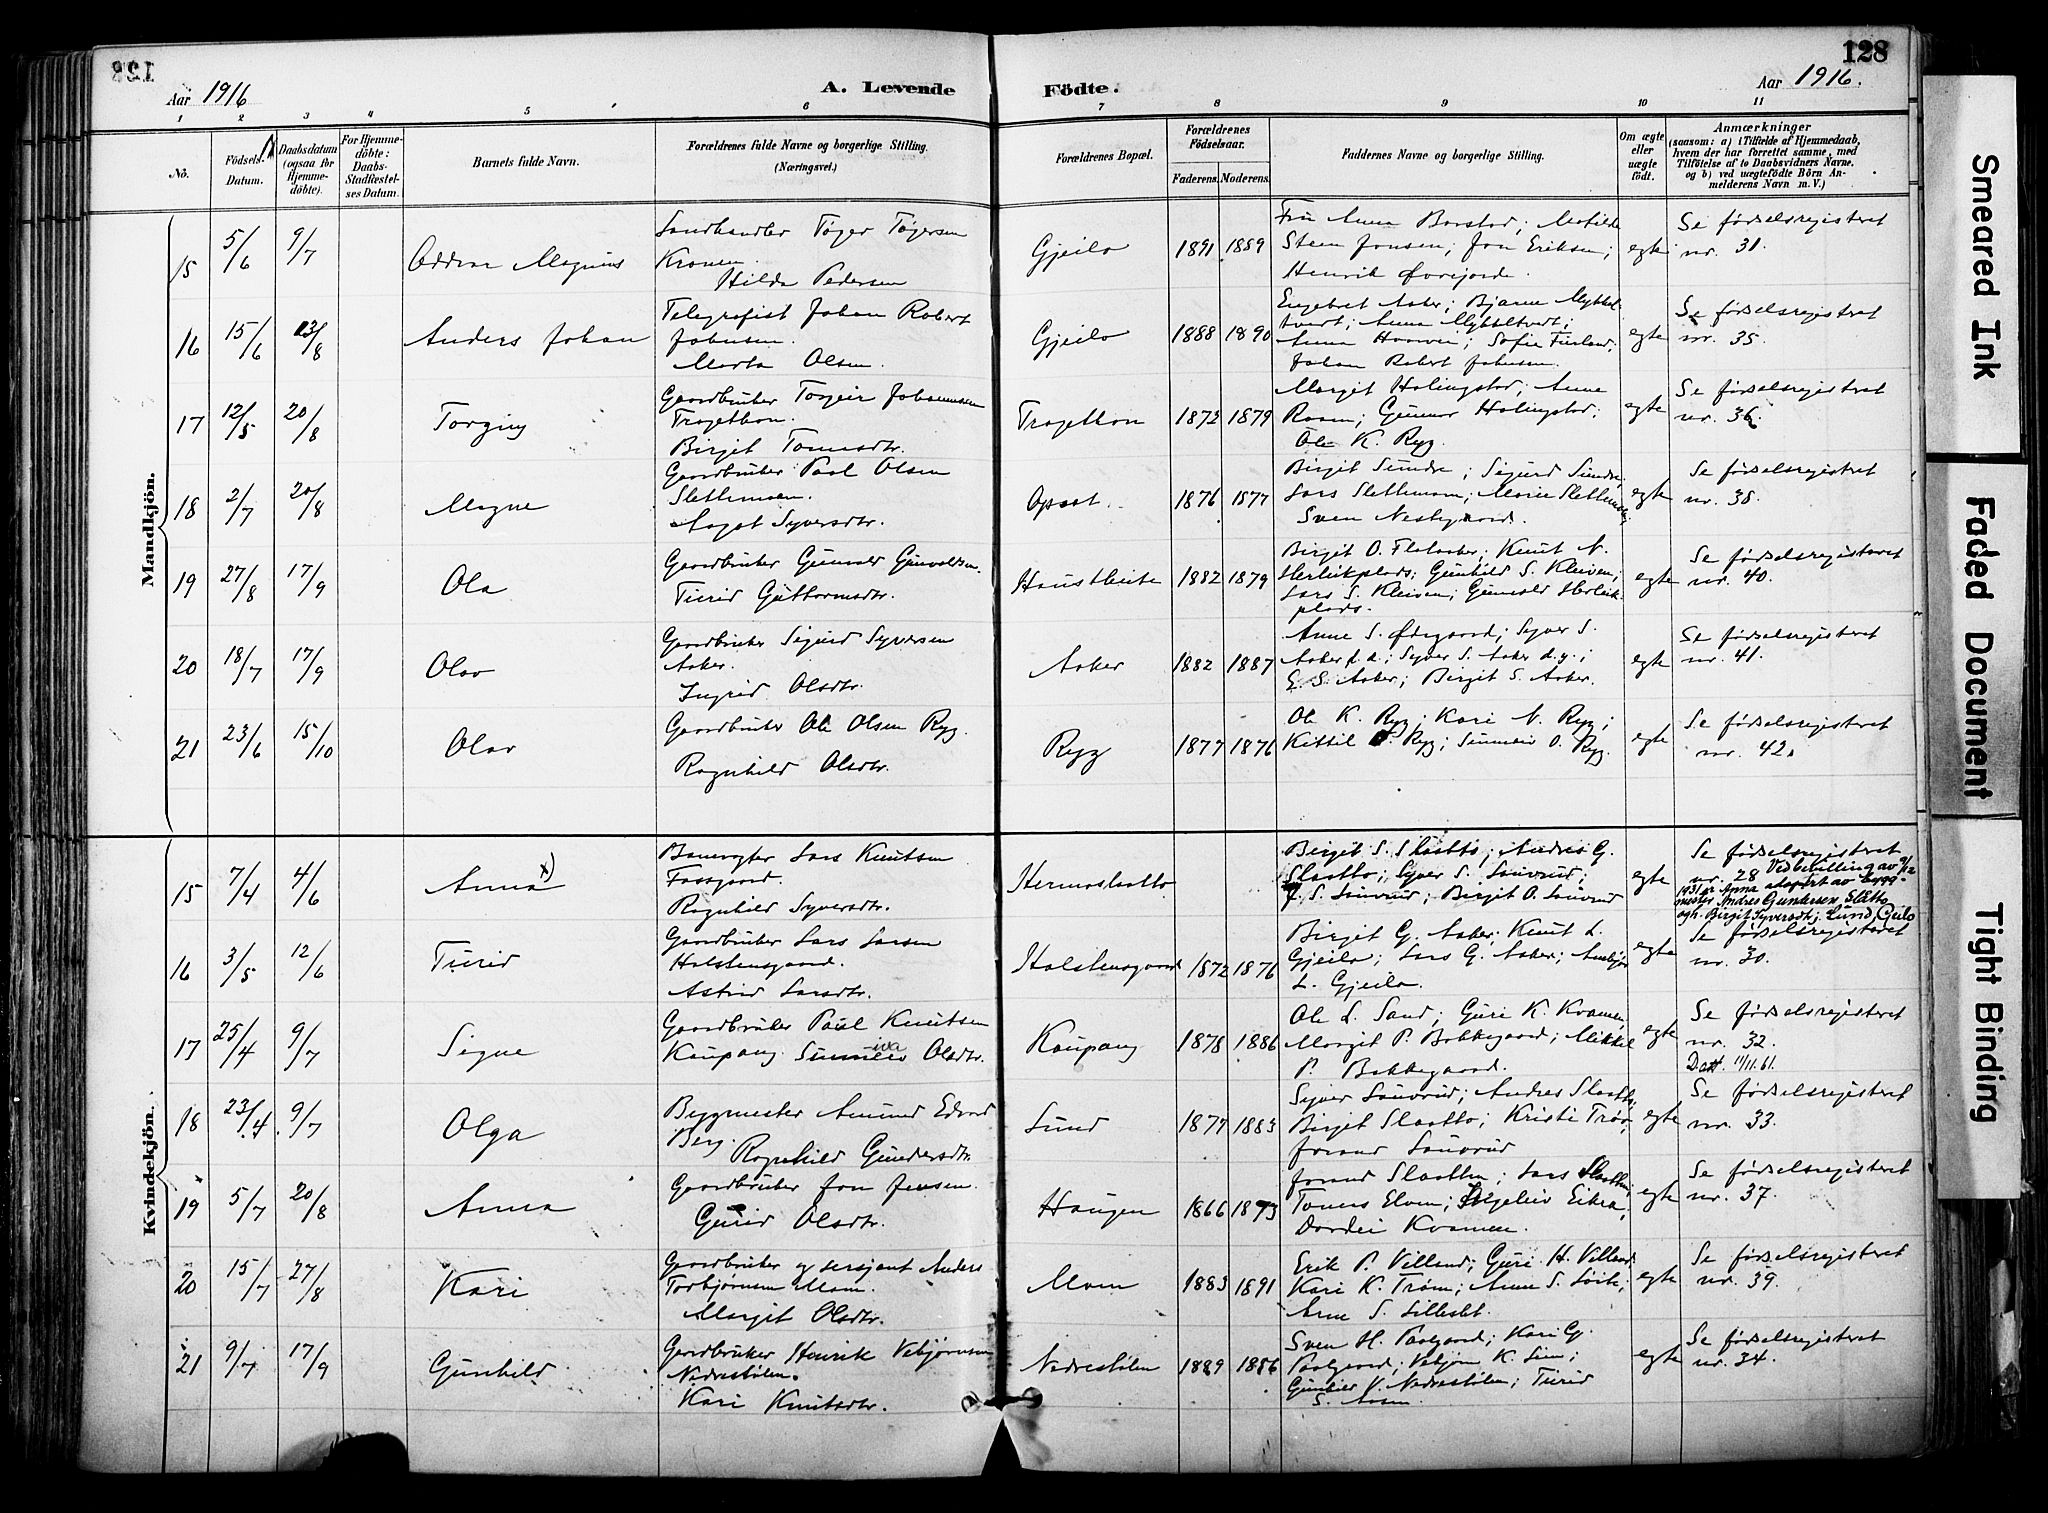 128
Aar 1916
A. Levende Födte.
Aar 1916.
1 2 3 4 5 6 7 8 9 10 11
No.
Födsels-Datum.
Daabsdatum (ogsaa for Hjemmedöbte).
For Hjemmedöbte: Daabs-Stadfestelses Datum.
Barnets fulde Navn.
Forældrenes fulde Navne og borgerlige Stilling.
(Næringsvei.)
Forældrenes Bopæl.
Forældrenes Födselsaar.
Faderens. Moderens.
Faddernes Navne og borgerlige Stilling.
Om ægte eller uægte födt.
Anmærkninger
(saasom: a) i Tilfælde af Hjemmedaab,
hvem der har forrettet samme, med
Tilföielse af to Daabsvidners Navne,
og b) ved uægtefödte Börn Anmelderens Navn m. V.)
Mandkjön.
15 5/6 9/7 Oddvar Magnus
Landhandler Tøger Tøgersen
Kronen.
Hilda Pedersen
Gjeilo 1891 1889
Fru Anna Borstad; Matilde
Steen Jonsen; Jon Eriksen;
Henrik Øvrejorde.
egte
Se fødselsregistret
nr. 31.
16 15/6 13/8 Anders Johan
Telegrafist Johan Robert
Johnsen.
Marta Olsen.
Gjeilo 1888 1890
Engebret Aaker; Bjarne Mykkeltvedt; Anna Mykkeltvedt;
Johan Robert Johnsen.
egte
Se fødselsregistret
nr. 35.
17 12/5 20/8 Torgny
Gaardbruker Torgeir Johannesen
Tragethon.
Birgit Tomasdtr.
Tragethon 1873 1879
Margit Halingstad; Anna
Raaen; Gunnar Halingstad;
Ole K. Ryg.
egte
Se fødselsregistret
nr. 36.
18 2/7 20/8 Magne
Gaardbruker Paal Olsen
Slettemoen.
Aagot Syversdtr.
Opsat. 1876 1877
Birgit Sundre; Sigurd Sundre;
Lars Slettemoen; Marie Slettemoen;
Sven Nestegaard.
egte
Se fødselsregistret
nr. 38.
19 27/8 17/9 Ola
Gaardbruker Gunvald Gunvaldsen.
Turid Guttormsdtr.
1882 1879
Birgit O. Flataaker; Knut N.
Herleikplads; Gunhild S. Kleiven;
Lars S. Kleiven; Gunvald Herleikplads.
egte
Se fødselsregistret
nr. 40.
20 18/7 17/9 Olav
Gaardbruker Sigurd Syversen
Aaker.
Ingrid Olsdtr.
Aaker 1882 1887
Anne S. Ødegaard; Syver S.
Aaker d.e.; Syver S. Aaker d.y.;
E. S. Aaker; Birgit S. Aaker.
egte
Se fødselsregistret
nr. 41.
21 23/6 15/10 Olav
Gaardbruker Ole Olsen Ryg.
Ragnhild Olsdtr.
Ryg 1877 1876
Ole K. Ryg; Kari N. Ryg;
Kittil O. Ryg; Sunneiv O. Ryg.
egte
Se fødselsregistret
nr. 42.
Kvindekjön.
15 7/4 4/6 Anna x)
Banevogter Lars Knutsen
Fossgaard.
Ragnhild Syversdtr.
Hermosslaatto
Birgit S. Slaatto; Andres G.
Slaatto; Syver S. Sauvrud;
J. S. Sauvrud; Birgit O. Sauvrud
egte
Se fødselsregistret
nr. 28 Vedbevilling av 9/12
1931 er Anna adoptert av byggmester Andres Gundersen Slåtto
og h. Birgit Syversdtr; Lund, Geilo
16 3/5 12/6 Turid
Gaardbruker Lars Larsen
Holstensgaard.
Astrid Larsdtr.
Holstensgaard 1872 1876
Birgit G. Aaker; Knut L.
Gjeilo; Lars G. Aaker; Annbjør
L. Gjeilo.
egte
Se fødselsregistret
nr. 30.
17 25/4 9/7 Signe
Gaardbruker Paul Knutsen
Kaupang. Sunneiva Olsdtr.
Kaupang 1878 1886
Ole L. Sand; Guri K. Kvamen;
Margit P. Bakkegaard; Mikkel
P. Bakkegaard.
egte
Se fødselsregistret
nr. 32.
Datt. 11/11.61.
18 23/4 9/7 Olga
Bygmester Amund Edvard
Berg.
Ragnhild Gundersdtr.
Lund 1877 1883
Syver Sauvrud; Andres Slaatto;
Birgit Slaatto; Kristi Trøo;
Jorand Sauvrud
egte
Se fødselsregistret
nr. 33.
19 5/7 20/8 Anna
Gaardbruker Jon Jensen.
Gurid Olsdtr.
Haugen 1866 1873
Jorand Slaatten; Lars Slaatten;
Tomas Elven; Ingeleiv Eikra;
Dordei Kvamen.
egte
Se fødselsregistret
nr. 37.
20 15/7 27/8 Kari
Gaardbruker og sersjant Anders
Torbjørnsen Moen.
Margit Olsdtr.
Moen 1883 1891
Erik P. Villand; Guri H. Villand;
Kari K. Trøim; Anne S.
Arne S. Lilleslet.
egte
Se fødselsregistret
nr. 39.
21 9/7 17/9 Gunhild
Gaardbruker Henrik Vebjørnsen
Nedrestølen.
Kari Knutsdtr.
Nedrestølen 1889 1886
Sven H. Paalgaard; Kari G.
Paalgaard; Vebjørn K. Lien;
Gunhild V. Nedrestølen; Turid
S. Aasen.
egte
Se fødselsregistret
nr. 34.
Smeared Ink
Faded Document
Tight Binding